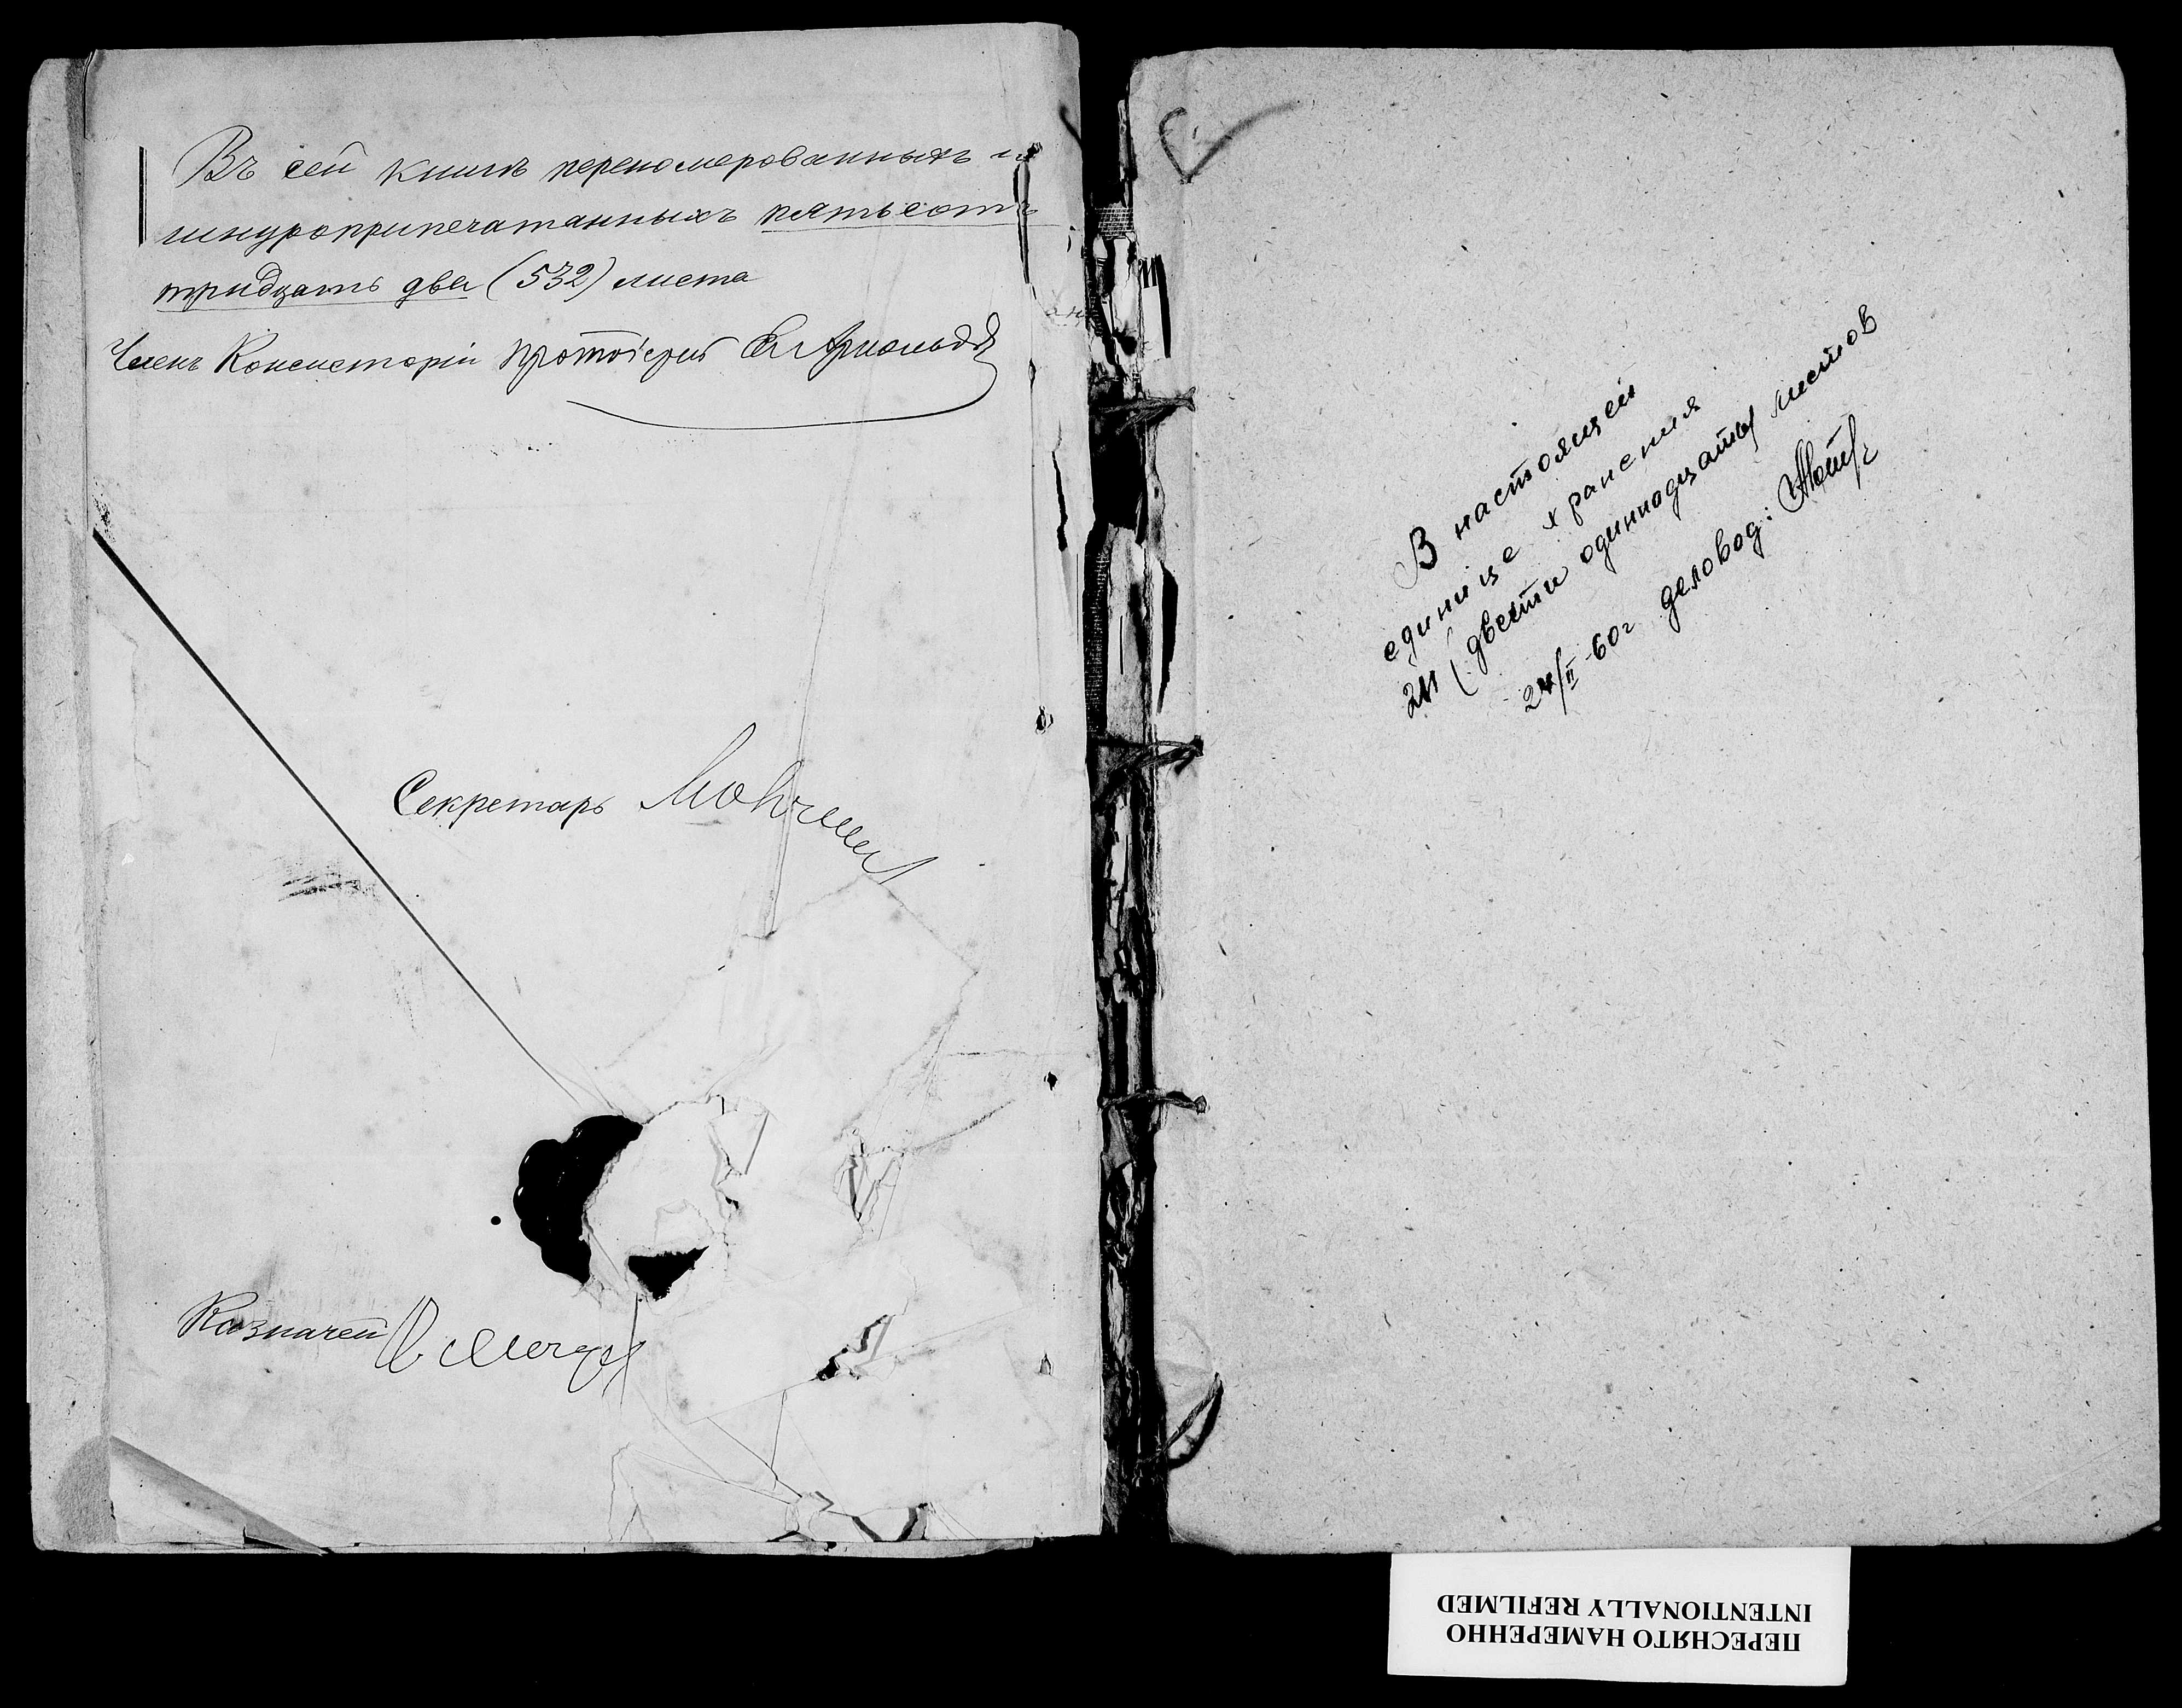 Въ сей книгѣ перенумерованныхъ и
шнуроприпечатанныхъ пятьсотъ
тридцать два (532) листа
Членъ Консисторіи Протоіерей
Секретарь
Казначей
В настоящей
единице хранения
211 (двести одиннадцать) листов
24/II-60г деловод:
ПЕРЕСНЯТО НАМЕРЕННО
INTENTIONALLY REFILMED